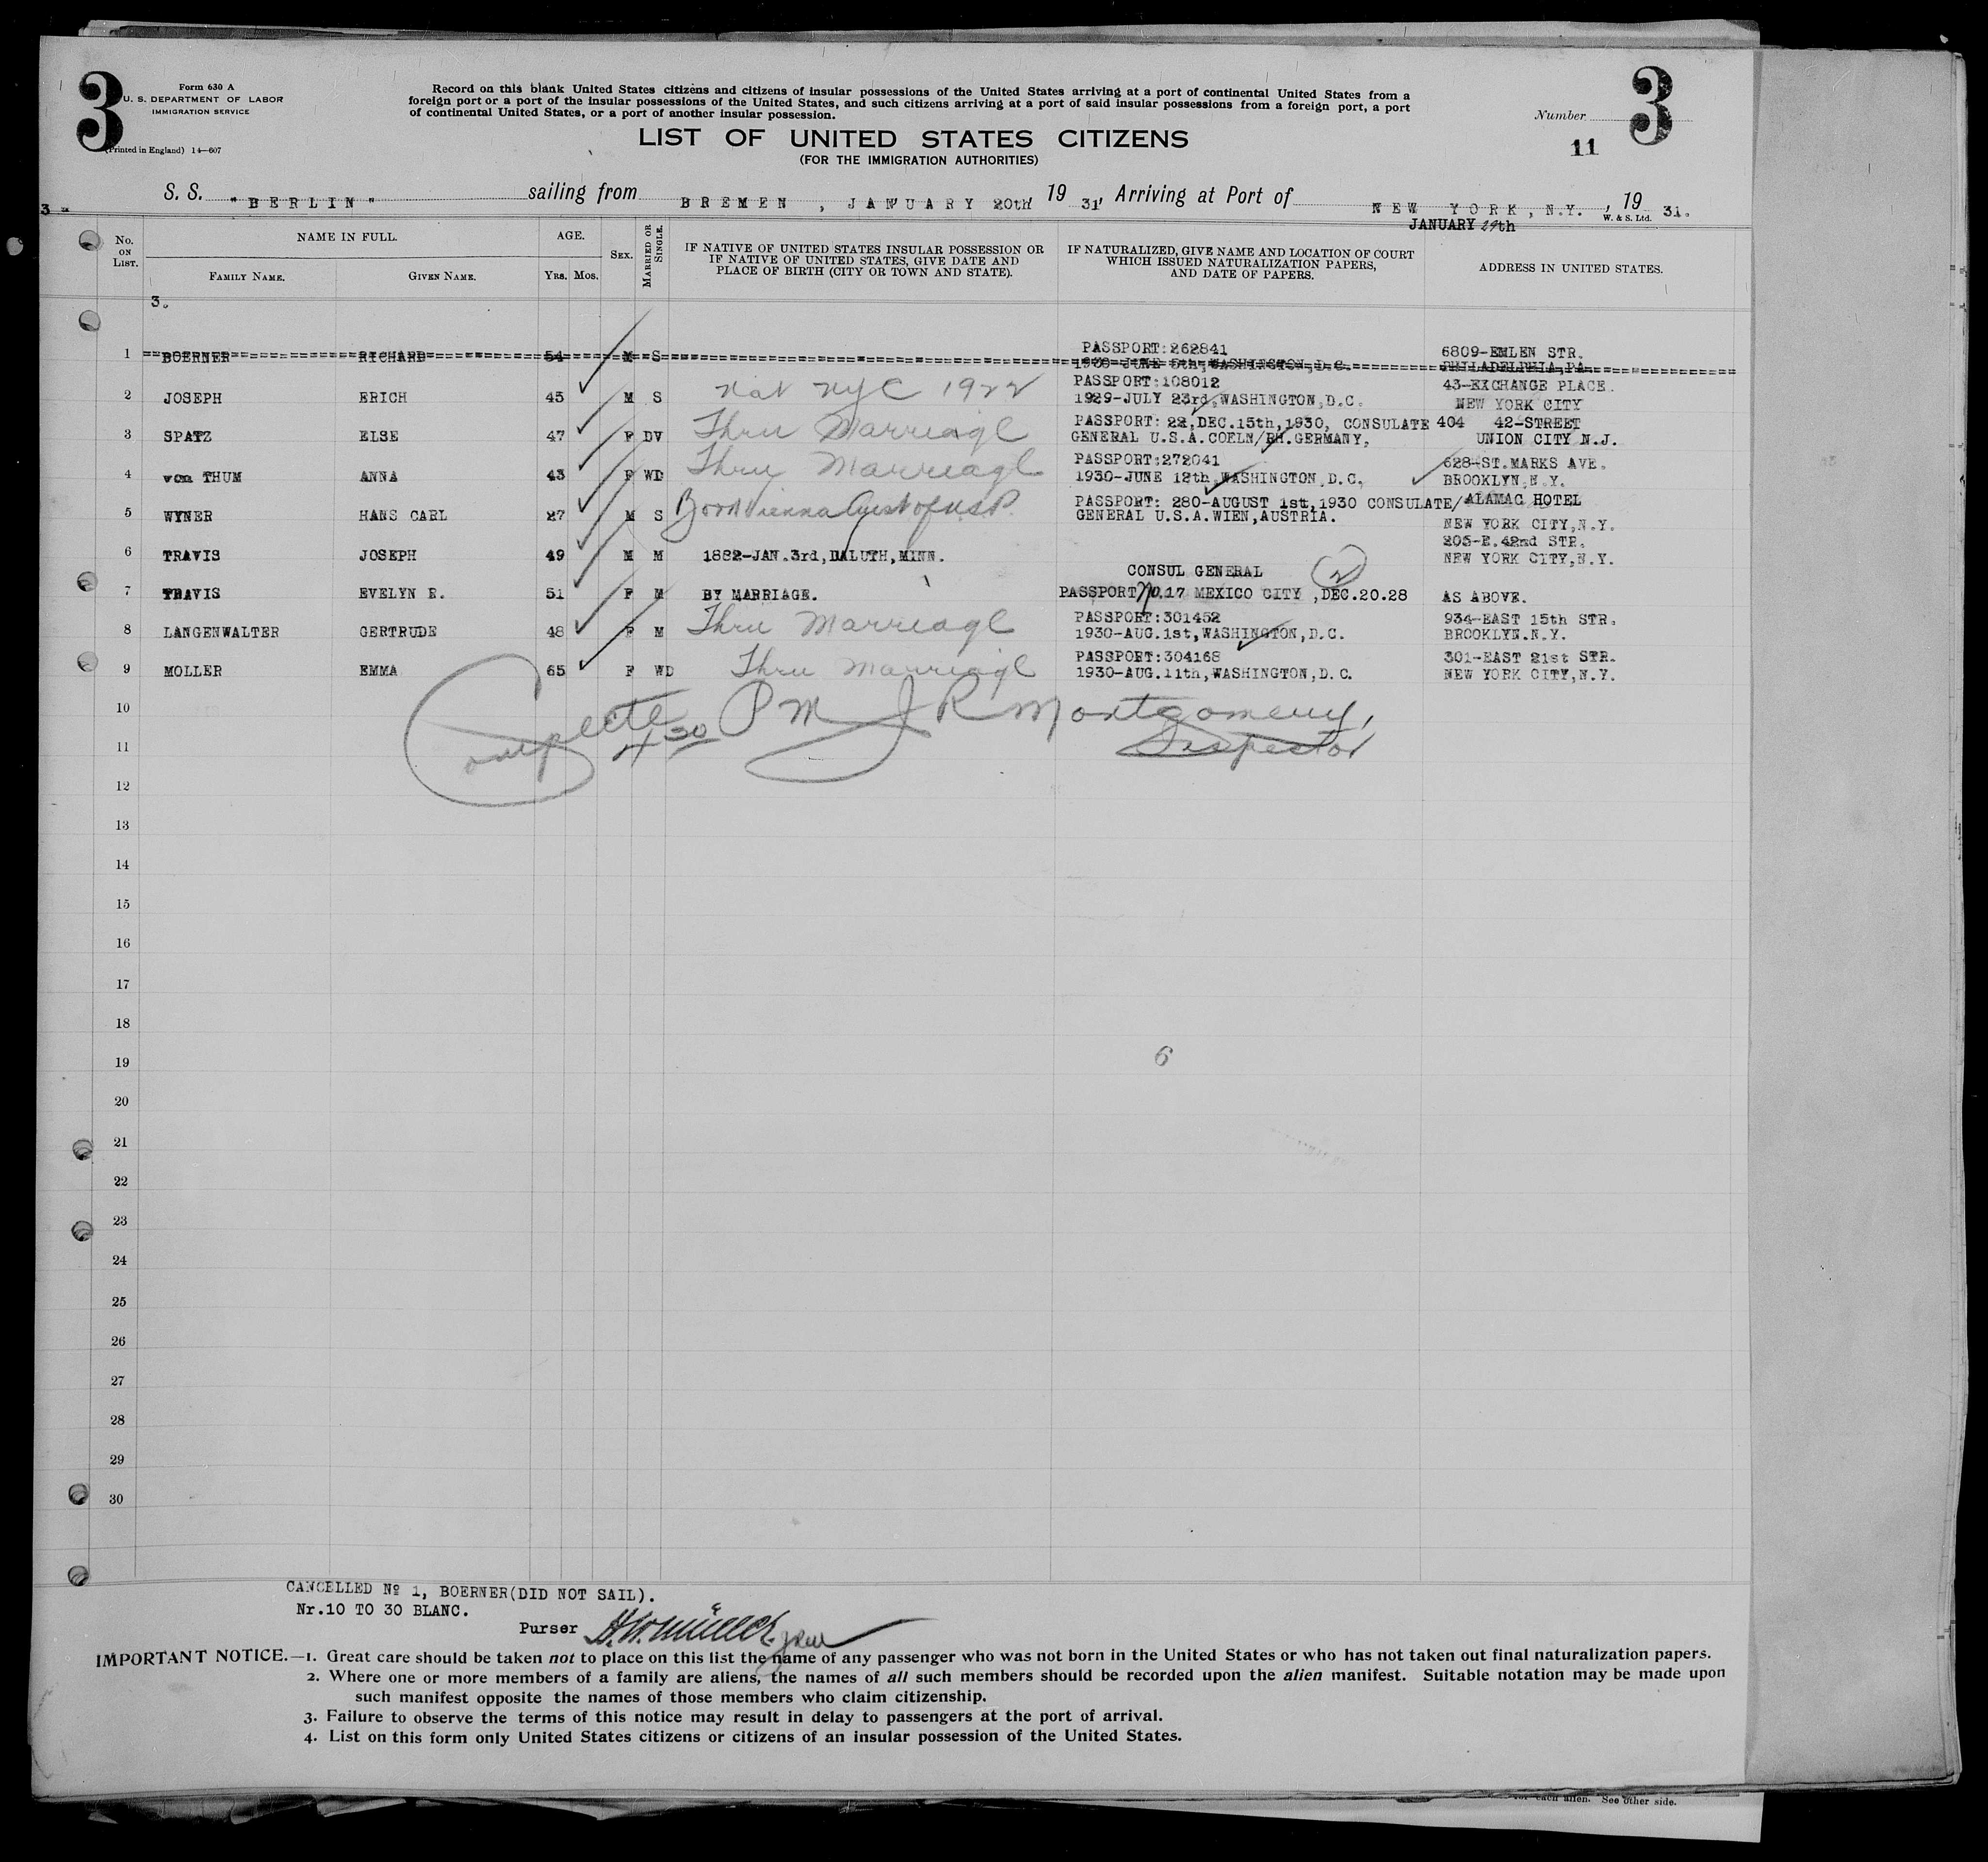 3
Form 630 A
U. S. DEPARTMENT OF LABOR
IMMIGRATION SERVICE
(Printed in England) 14—607
Record on this blank United States citizens and citizens of insular possessions of the United States arriving at a port of continental United States from a
foreign port or a port of the insular possessions of the United States, and such citizens arriving at a port of said insular possessions from a foreign port, a port
of continental United States, or a port of another insular possession.
LIST OF UNITED STATES CITIZENS
(FOR THE IMMIGRATION AUTHORITIES)
Number 3
11
S. S. "BERLIN" sailing from BREMEN, JANUARY 20th 19 31, Arriving at Port of NEW YORK, N.Y. , 19 31.
W. & S. Ltd.
JANUARY 29th
3
No. ON LIST.
NAME IN FULL.
FAMILY NAME.
GIVEN NAME.
AGE.
YRS. MOS.
SEX.
MARRIED OR SINGLE.
IF NATIVE OF UNITED STATES INSULAR POSSESSION OR
IF NATIVE OF UNITED STATES, GIVE DATE AND
PLACE OF BIRTH (CITY OR TOWN AND STATE).
IF NATURALIZED, GIVE NAME AND LOCATION OF COURT
WHICH ISSUED NATURALIZATION PAPERS,
AND DATE OF PAPERS.
ADDRESS IN UNITED STATES.
3.
1 BOERNER RICHARD 54 M S PASSPORT:262841 6809-EMLEN STR.
1930-JUNE 5th, WASHINGTON,D.C. PHILADELPHIA,PA.
2 JOSEPH ERICH 45 M S Nat NYC 1922 PASSPORT:108012 43-EXCHANGE PLACE.
1929-JULY 23rd,WASHINGTON,D.C. NEW YORK CITY
3 SPATZ ELSE 47 F DV Thru Marriage PASSPORT: 22,DEC.15th,1930, CONSULATE 404 42-STREET
GENERAL U.S.A.COELN/RH.GERMANY, UNION CITY N.J.
4 von THUM ANNA 43 F WD Thru Marriage PASSPORT:272041 628-ST.MARKS AVE.
1930-JUNE 12th,WASHINGTON,D.C. BROOKLYN.N.Y.
5 WYNER HANS CARL 27 M S Born Vienna PASSPORT: 280-AUGUST 1st,1930 CONSULATE/ ALAMAC HOTEL
GENERAL U.S.A.WIEN,AUSTRIA. NEW YORK CITY,N.Y.
6 TRAVIS JOSEPH 49 M M 1882-JAN.3rd,DALUTH,MINN. 205-E.42nd STR.
NEW YORK CITY,N.Y.
CONSUL GENERAL 2
7 TRAVIS EVELYN E. 51 F M BY MARRIAGE. PASSPORT No.17 MEXICO CITY ,DEC.20.28 AS ABOVE.
8 LANGENWALTER GERTRUDE 48 F M Thru Marriage PASSPORT:301452 934-EAST 15th STR.
1930-AUG.1st,WASHINGTON,D.C. BROOKLYN.N.Y.
9 MOLLER EMMA 65 F WD Thru Marriage PASSPORT:304168 301-EAST 21st STR.
1930-AUG.11th,WASHINGTON,D.C. NEW YORK CITY,N.Y.
10
Complete 4 30 PM J R Montgomery,
11
Inspector
12
13
14
15
16
17
18
19
6
20
21
22
23
24
25
26
27
28
29
30
CANCELLED Nº 1, BOERNER(DID NOT SAIL).
Nr.10 TO 30 BLANC.
Purser
IMPORTANT NOTICE.—1. Great care should be taken not to place on this list the name of any passenger who was not born in the United States or who has not taken out final naturalization papers.
2. Where one or more members of a family are aliens, the names of all such members should be recorded upon the alien manifest. Suitable notation may be made upon
such manifest opposite the names of those members who claim citizenship.
3. Failure to observe the terms of this notice may result in delay to passengers at the port of arrival.
4. List on this form only United States citizens or citizens of an insular possession of the United States.
for each alien. See other side.